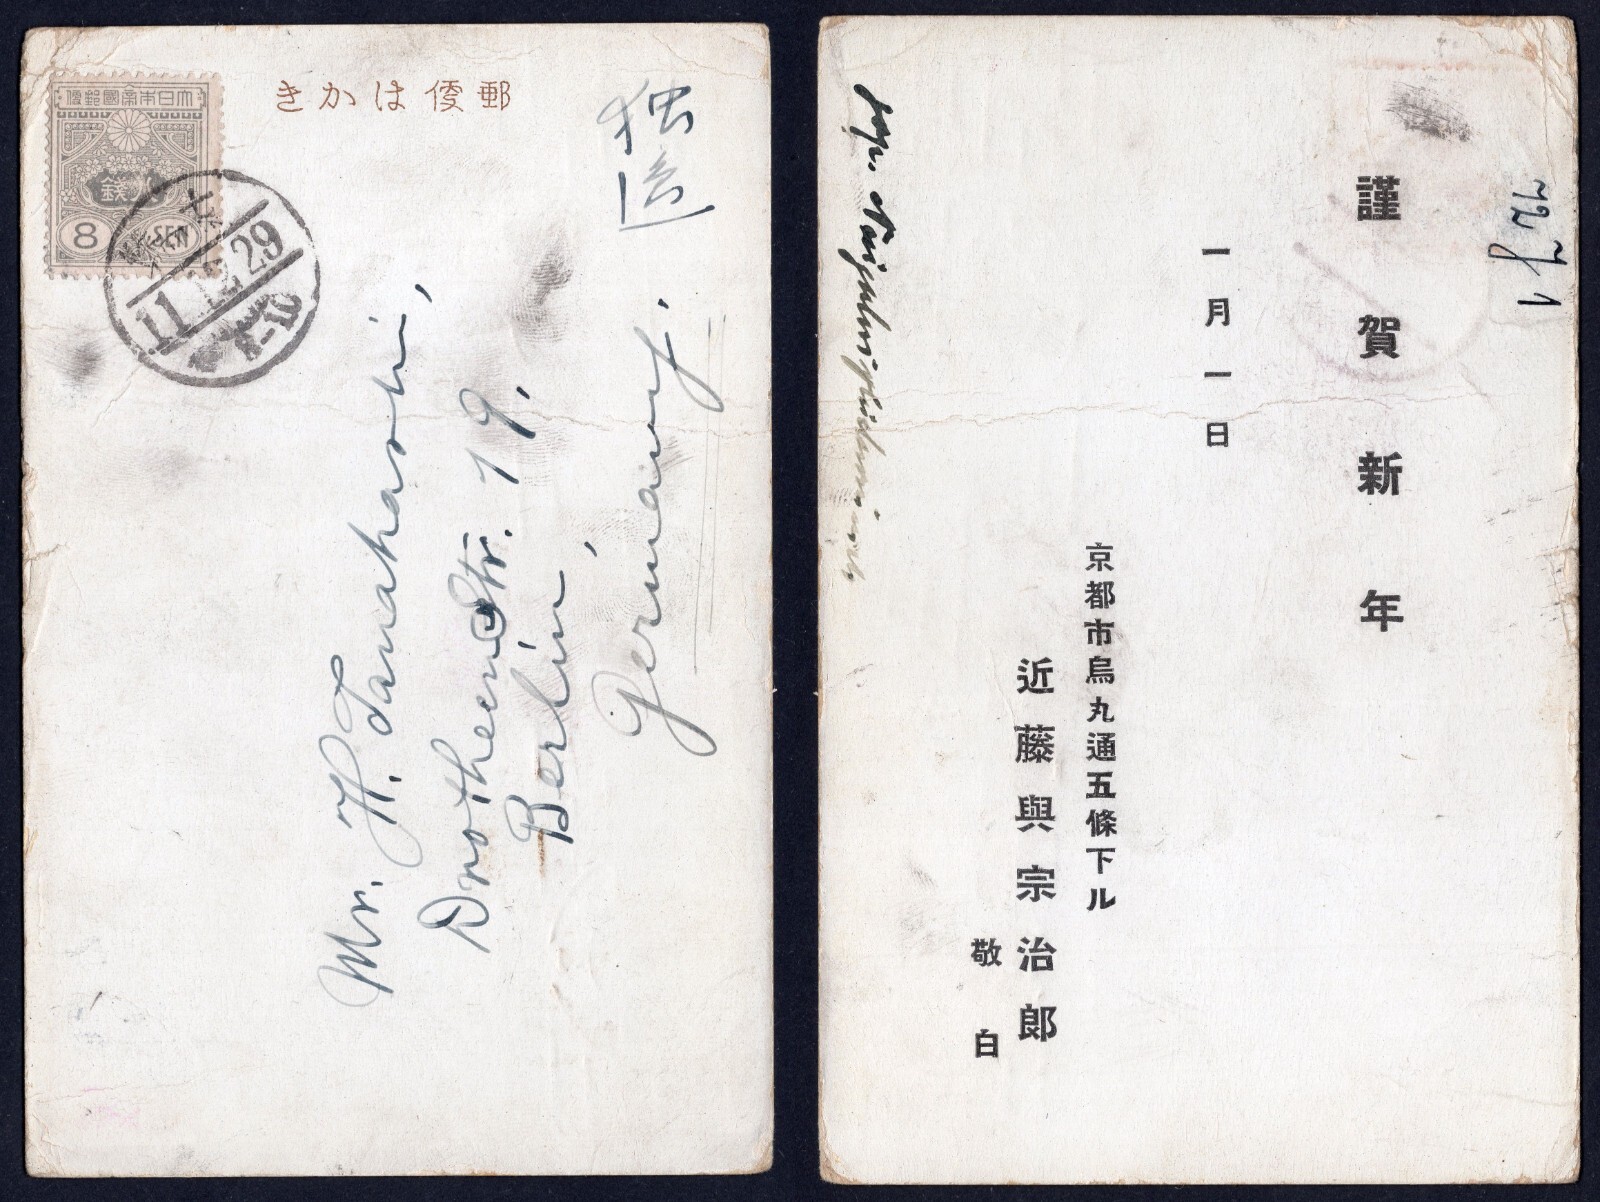 大日本帝國郵便
八錢
8 SEN
郵便はかき
11.12.29
8-10
独逸
Mr. H. Tanahashi,
Drotheen Str. 79,
Berlin,
Germany.
謹賀新年
一月一日
京都市烏丸通五條下ル
近藤與宗治郎
敬白